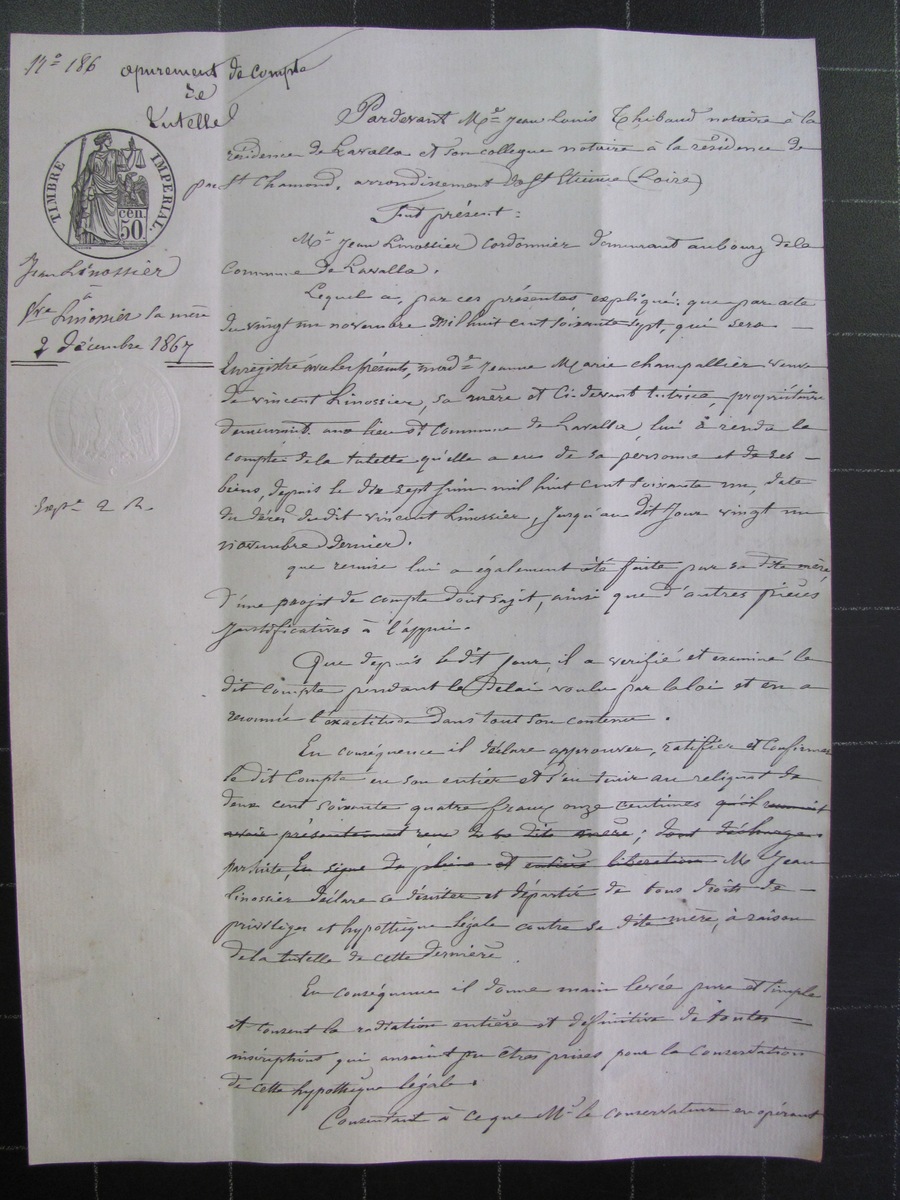 N° 186
apurement de compte
de
tutelle
TIMBRE IMPERIAL.
50 cen.
Jean Linossier
à
Vve Linossier sa mère
2 Décembre 1867
Expre 2 R.
Pardevant Me Jean Louis Thibaud notaire à la
résidence de Lavalla et son collegue notaire à la résidence de
St Chamond, arrondissement de St Etienne (Loire)
Fut présent :
Mr Jean Linossier cordonnier demeurant au bourg de la
Commune de Lavalla.
Lequel a, par ces présentes expliqué : que par acte
du vingt un novembre mil huit cent soixante sept, qui sera
Enregistré avec les présentes, made Jeanne Marie champallier veuve
de vincent Linossier, sa mère et ci-devant tutrice, propriétaire
demeurant aux lieu et Commune de Lavalla, lui à rendu le
compte de la tutelle qu'elle a eue de sa personne et de ses
biens, depuis le dix sept Juin mil huit cent soixante un, date
du décès dudit vincent Linossier, Jusqu'au dit Jour vingt un
novembre dernier.
que remise lui a également été faite par sa dite mère,
d'une projet de compte dont s'agit, ainsi que d'autres pièces
Justificatives à l'appui.
Que depuis le dit jour, il a verifié et examiné le
dit compte pendant le Délai voulu par la loi et en a
reconnu l'exactitude dans tout son contenu.
En conséquence il déclare approuver, ratifier et Confirmer
le dit Compte en son entier et s'en tenir au reliquat de
deux cent soixante quatre francs onze centimes qu'il reconnait
avoir présentement reçu de sa dite mère ; dont décharge
par suite, En signe de pleine et entière liberation Mr Jean
Linossier déclare se désister et départir de tous droits de
privilèges et hypothèque légale contre sa dite mère, à raison
de la tutelle de cette dernière.
En conséquence il donne main levée pure et simple
et consent la radiation entière et définitive de toutes
inscriptions qui auraient pu êtres prises pour la Conservation
de cette hypothèque légale.
Consentant à ce que Mr le conservateur en opérant